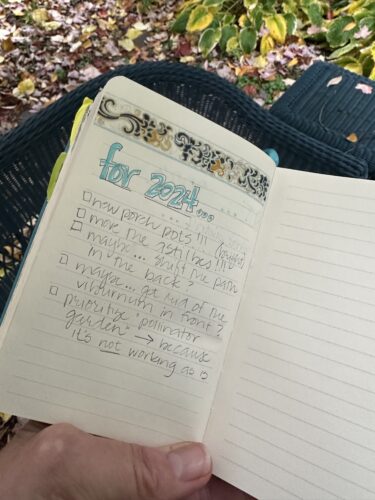 for 2024...
□ new porch pots!!!
□ move the astilbes!!!
□ maybe... shift the path
in the back?
□ maybe... get rid of the
viburnum in front?
□ prioritise "pollinator
garden" → because
it's not working as is